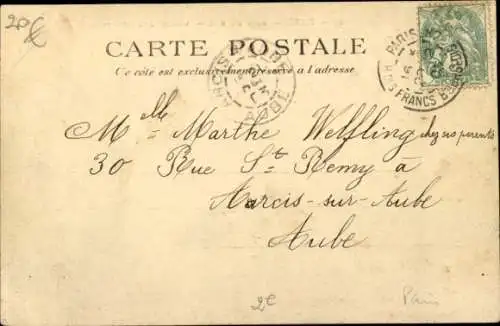 20 €
CARTE POSTALE
Ce côté est exclusivement réservé à l'adresse
PARIS
R. DES FRANCS BOURGEOIS
ARCIS AUBE
AUBE
Mlle Marthe Welfling chez ses parents
30 Rue St Remy à
Arcis-sur-Aube
Aube
2e
Paris